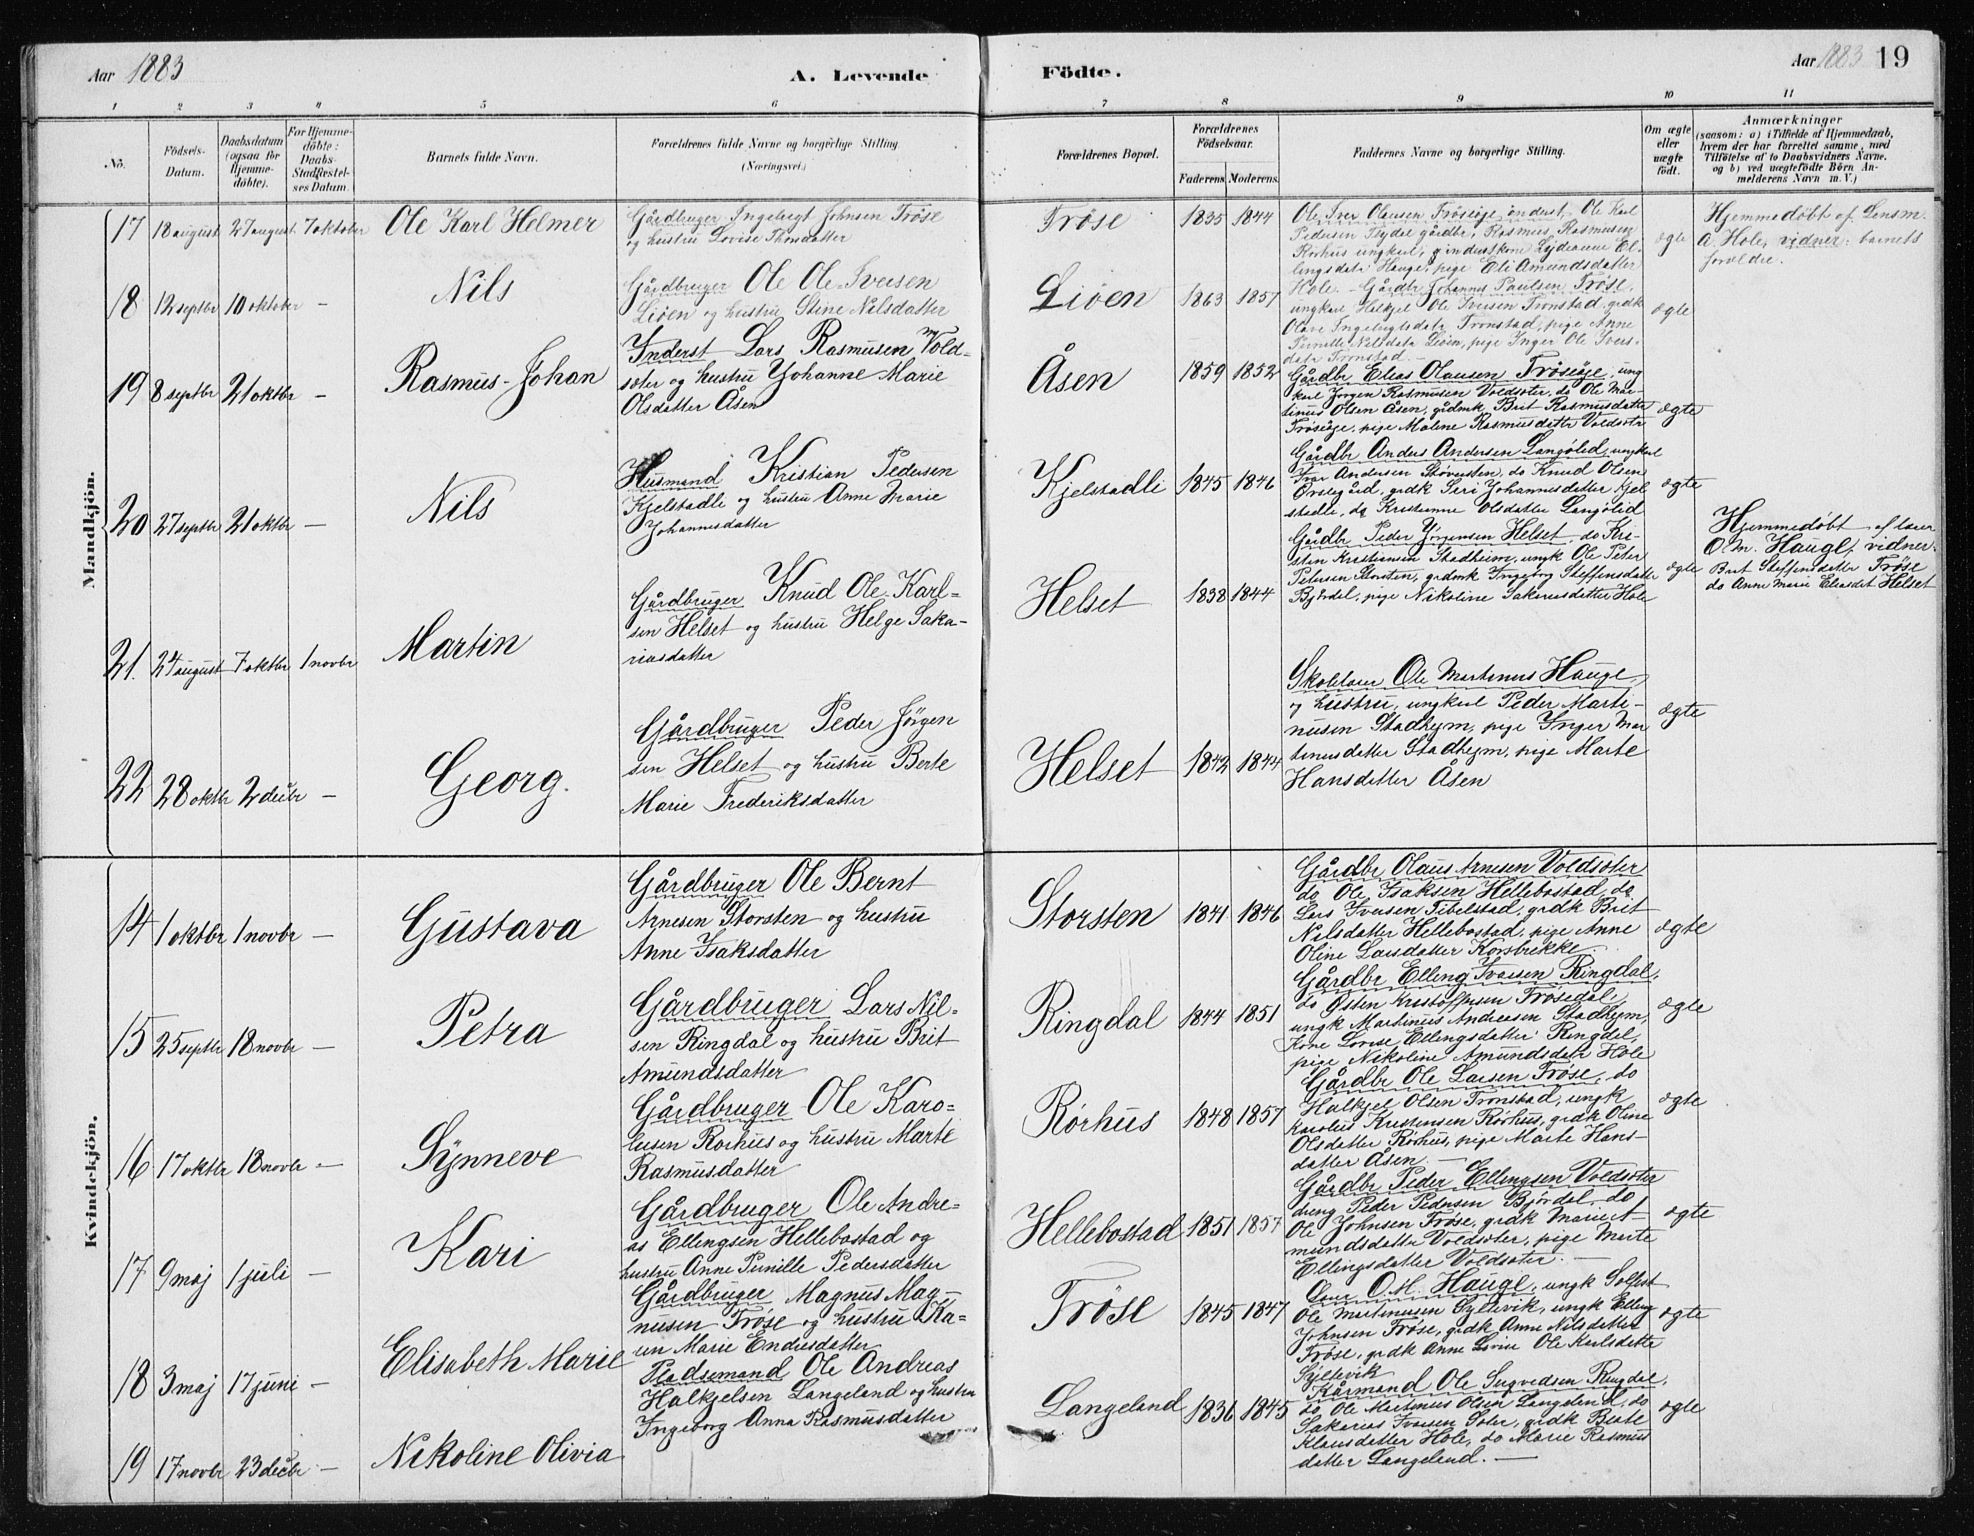 Aar 1883
A. Levende
Födte.
Aar 1883
19
1 2 3 4 5 6 7 8 9 10 11
No.
Födsels-
Datum.
Daabsdatum
(ogsaa for
Hjemme-
döbte).
For Hjemme-
döbte:
Daabs-
Stadfæstel-
ses Datum.
Barnets fulde Navn.
Forældrenes fulde Navne og borgerlige Stilling
(Næringsvei.)
Forældrenes Bopæl.
Forældrenes
Födselsaar.
Faderens Moderens.
Faddernes Navne og borgerlige Stilling.
Om ægte
eller
uægte
födt.
Anmærkninger
(saasom: a) i Tilfælde af Hjemmedaab,
hvem der har forrettet samme, med
Tilföielse af to Daabsvidners Navne.
og b) ved uægtefödte Börn An-
melderens Navn m. V.)
Mandkjön.
17 18 august 27 august 7 oktober Ole Karl Helmer
Gårdbruger Ingebrigt Johnsen Trøse
og hustru Lovise Thomdatter
Trøse 1835 1844
Ole Iver Olausen Trøseøje inderst, Ole Karl
Pedersen Fydal gårdbr, Rasmus Rasmusen
Rørhus ungkarl, inderstkone Lydeanne El-
lingsdatr Hauge, pige Eli Amundsdatter
Hole.
ægte
Hjemmedøbt af Lensm.
A. Hole, vidner: barnets
foreldre.
18 12 septbr 10 oktober - Nils
Gårdbruger Ole Ole-Iversen
Liøen og hustru Stine Nilsdatter
Liøen 1863 1857
Gårdbr Johannes Paulsen Trøse,
ungkarl Halkjel Ole Iversen Tronstad, grdk
Olave Ingebrigtsdatr Tronstad, pige Anne
Pernille Nilsdatr Liøen, pige Inger Ole Ivers-
datr Tronstad. -
ægte
19 8 septbr 21 oktbr - Rasmus-Johan
Inderst Lars Rasmusen Vold-
sæter og hustru Johanne Marie
Olsdatter Åsen
Åsen 1859 1852
Gårdbr Elias Olausen Trøseøje, ung
karl Jørgen Rasmusen Voldsæter, do Ole Mar-
tinus Olsen Åsen, grdmk Brit Rasmusdatter
Trøseøje, pige Malene Rasmusdattr Voldsætr
ægte
20 27 septbr 21 oktbr - Nils
Husmand Kristian Pedersen
Kjelstadli og hustru Anne Marie
Johannesdatter
Kjelstadli 1845 1846
Gårdbr Anders Andersen Langølid, ungkarl
Ivar Andersen, do Knud Olsen
grdk Siri Johannesdatter Kjel
stadli, do Kristianne Olsdatter Langølid
ægte
21. 24 august 7 oktbr 1 novbr Martin
Gårdbruger Knud Ole Karl-
sen Helset og hustru Helge Saka-
riasdatter
Helset 1838 1844
Gårdbr Peder Jørgensen Helset, do Kri-
sten Kristiansen Stadheim, ungk Ole Peter
Petersen Storsten, grdmk Ingeborg Steffensdatter
Bjørdal, pige Nikoline Sakariasdatter Hole
ægte
Hjemmedøbt af lærer
O. M. Hauge, vidner:
Brit Steffensdatter Trøse
do Anne Marie Eliasdet Helset
22 28 oktbr 2 decbr - Georg.
Gårdbruger Peder Jørgen
sen Helset og hustru Berte
Marie Frederiksdatter
Helset 1842 1844
Skolelærer Ole Martinus Hauge
og hustru, ungkarl Peder Marti-
nusen Stadheym, pige Inger Mar
tinusdatter Stadheym, pige Marte
Hansdatter Åsen
ægte
Kvindekjön.
14 1 oktbr 1 novbr - Gustava
Gårdbruger Ole Bernt
Arnesen Storsten og hustru
Anne Isaksdatter
Storsten 1841 1846
Gårdbr Olaus Arnesen Voldsæter
do Ole Isaksen Hellebostad, do
Lars Iversen Fibelstad, grdk Brit
Nilsdatter Hellebostad, pige Anne
Oline Larsdatter Korsbrekke
ægte
15 25 septbr 18 novbr - Petra
Gårdbruger Lars Nil-
sen Ringdal og hustru Brit
Amundsdatter
Ringdal 1844 1851
Gårdbr Elling Ivarsen Ringdal,
do Østen Kristoffersen Trøsedal,
ungk Martinus Andreasen Stadheym,
Kone Lovise Ellingsdatter Ringdal,
pige Nikoline Amundsdatr Hole
ægte
16 17 oktbr 18 novbr - Synneve
Gårdbruger Ole Karo-
lusen Rørhus og hustru Marte
Rasmusdatter
Rørhus 1848 1857
Gårdbr Ole Larsen Trøse, do
Halkjel Olsen Tronstad, ungk
Karolus Kristensen Rørhus, grdk Oline
Olsdatter Rørhus, pige Marte Hans-
datter Åsen. -
ægte
17 9 maj 1 juli - Kari
Gårdbruger Ole Andre-
as Ellingsen Hellebostad og
hustru Anne Pernille Pedersdatter
Hellebostad 1851 1857
Gårdbr Peder Ellingsen Voldsæter
dreng Peder Pedersen Bjørdal, do
Ole Johnsen Trøse, grdk Marie A-
mundsdatter Voldsæter, pige Marte
Ellingsdatter Voldsæter. -
ægte
18 3 maj 17 juni - Elisabeth Marie
Gårdbruger Magnus Mag-
nusen Trøse og hustru Ka-
ren Marie Endresdatter
Trøse 1845 1847
Lærer O. M. Hauge, ungk Solfest
Ole Martinusen Syltevik, ungk Elling
Johnsen Trøse, grdk Anne Nilsdatter
Trøse, grdk Anne Lovise Ole Karlsdatter
Syltevik
ægte
19 17 novbr 23 decbr - Nikoline Olivia
Pladsemand Ole Andreas
Halkjelsen Langeland og hustru
Ingeborg Anna Rasmusdatter
Langeland 1836 1845
Kårmand Ole Sugvedsen Ringdal,
do Ole Martinus Olsen Langeland, do
Sakarias Ivarsen Sæter, grdk Beate
Klausdatter Hole, do Marie Rasmus
datter Langeland. -
ægte